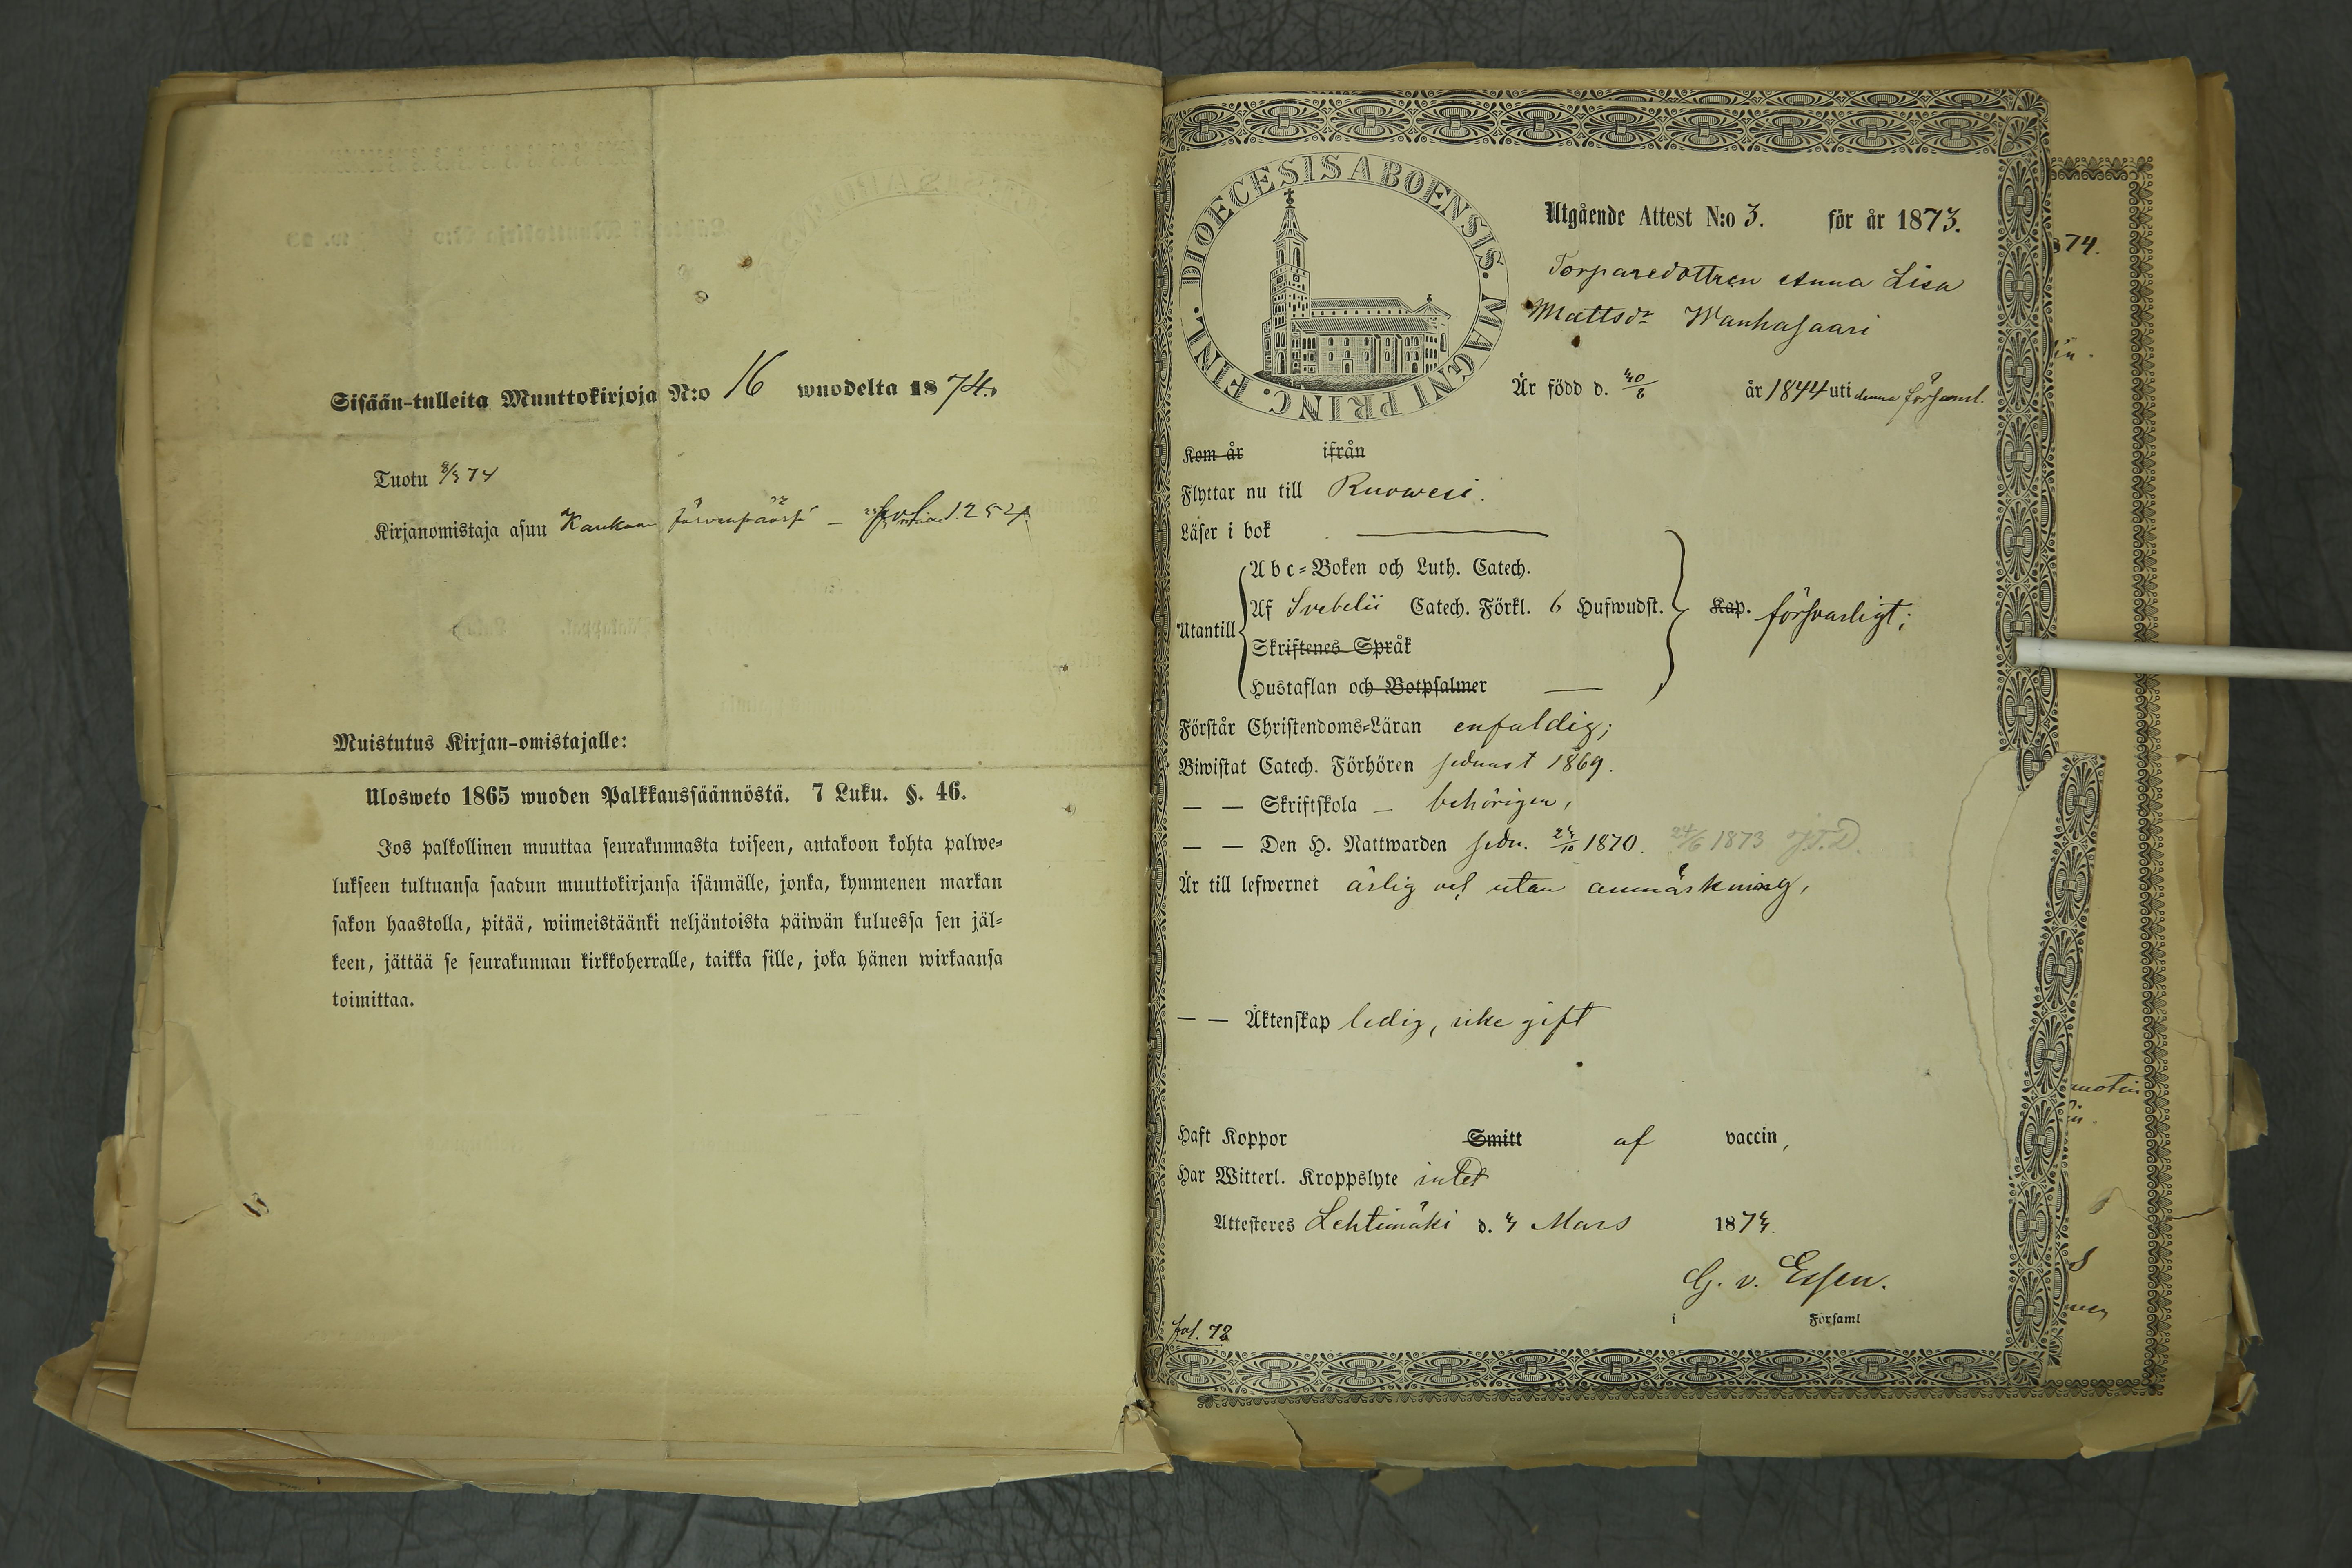 Sisään-tulleita Muuttokirjoja N:o 16 wuodelta 1874.
Tuotu 8/3 74
Kirjanomistaja asuu Kaukaan Järvenpäässä –
Muistutus Kirjan-omistajalle:
Ulosweto 1865 wuoden Palkkaussäännöstä. 7 Luku. §. 46.
Jos palkollinen muuttaa seurakunnasta toiseen, antakoon kohta palwe=
lukseen tultuansa saadun muuttokirjansa isännälle, jonka, kymmenen markan
sakon haastolla, pitää, wiimeistäänki neljäntoista päiwän kuluessa sen jäl=
keen, jättää se seurakunnan kirkkoherralle, taikka sille, joka hänen wirkaansa
toimittaa.
DIOECESIS ABOENSIS. MAGNI PRINC. FINL.
Utgående Attest N:o 3. för år 1873.
Torparedottren Anna Lisa
Mattsdr Wanhasaari
Är född d. år 1844 uti denna församl.
Kom år ifrån
Flyttar nu till Ruowesi.
Läser i bok
Utantill
Abc=Boken och Luth. Catech.
Af Svebelii Catech. Förkl. 6 Hufwudst.
Skriftenes Språk
Hustaflan och Botpsalmer
Kap. försvarligt;
Förstår Christendoms=Läran enfaldig;
Biwistat Catech. Förhören sednast 1869.
— — Skriftskola – behörigen,
— — Den H. Nattwarden sedn. 1870. 24/6 1873
Är till lefwernet ärlig och utan anmärkning,
— — Äktenskap ledig, icke gift
Haft Koppor Smitt af vaccin,
Har Witterl. Kroppslyte intet
Attesteres Lehtimäki d. 4 Mars 1874.
G. v. Essen.
i Församl
fol. 72
74.